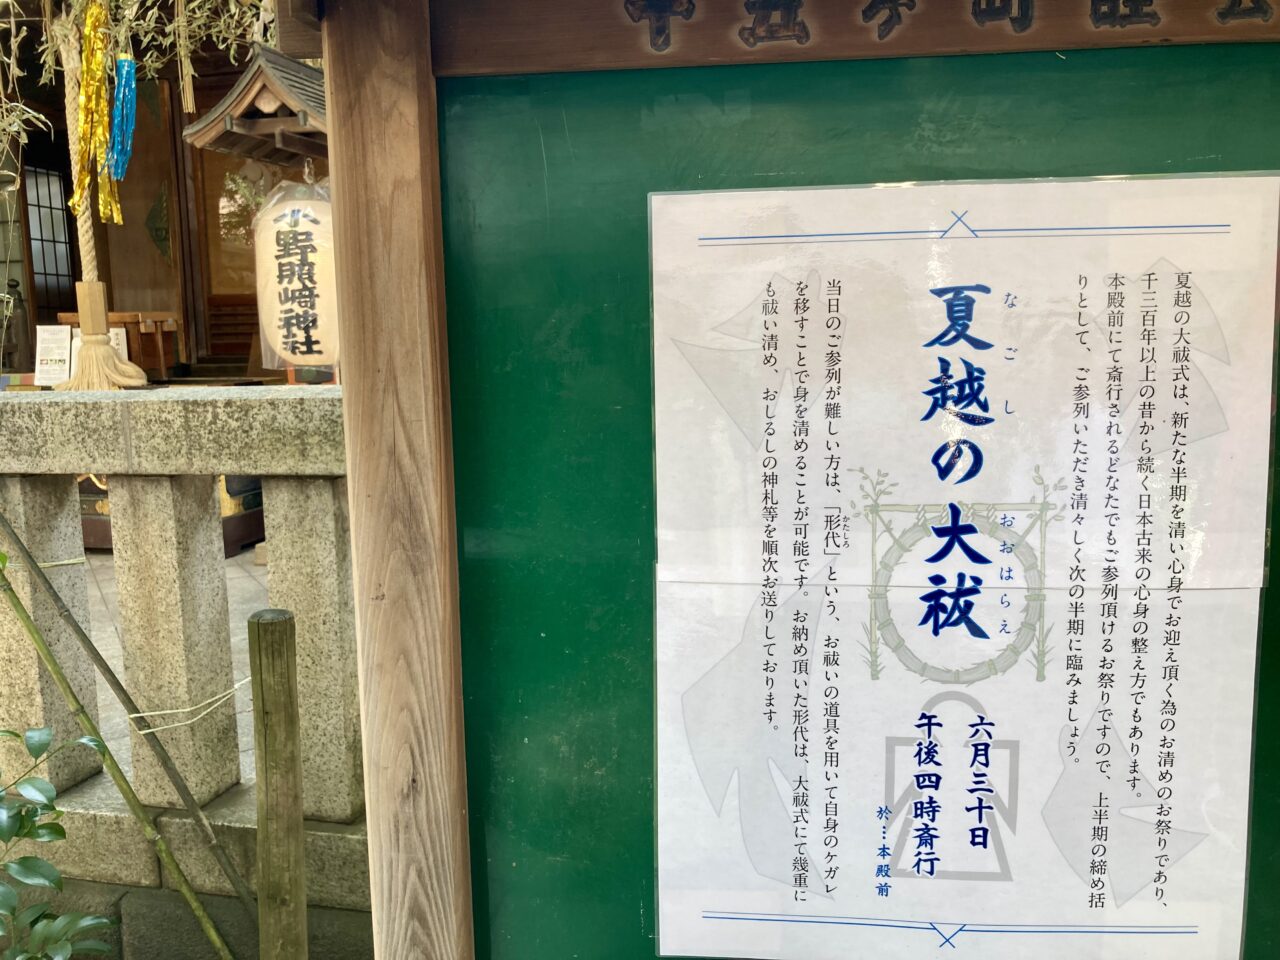 小野照崎神社
夏越の大祓式は、新たな半期を清い心身でお迎え頂く為のお清めのお祭りであり、
千三百年以上の昔から続く日本古来の心身の整え方でもあります。
本殿前にて斎行されるどなたでもご参列頂けるお祭りですので、上半期の締め括
りとして、ご参列いただき清々しく次の半期に臨みましょう。
なごし　おおはらえ
夏越の大祓
六月三十日
午後四時斎行
於…本殿前
当日のご参列が難しい方は、「形代」という、お祓いの道具を用いて自身のケガレ
かたしろ
を移すことで身を清めることが可能です。お納め頂いた形代は、大祓式にて幾重に
も祓い清め、おしるしの神札等を順次お送りしております。